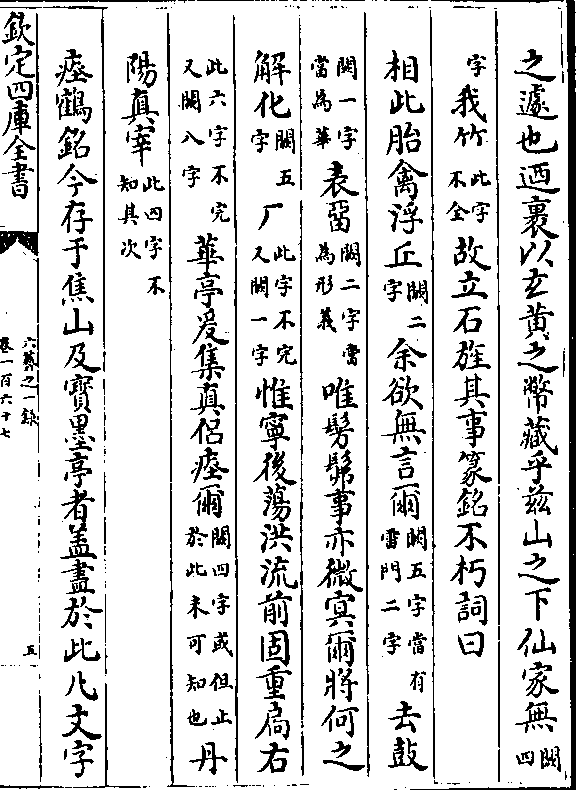 之遽也迺裹以玄黄之幣藏乎兹山之下仙家無闕四
字我竹此字不全故立石旌其事篆銘不朽詞曰
相此胎禽浮丘闕二字余欲無言爾闕五字當有雷門二字去鼓
闕一字當為華表留闕二字當為形義唯髣髴事亦微㝠爾將何之
解化闕五字厂此字不完又闕一字惟寧後蕩洪流前固重扃右
此六字不完又闕八字華亭爰集真侣瘞爾闕四字或但止於此未可知也丹
陽真宰此四字不知其次
瘞鶴銘今存于焦山及寳墨亭者盖盡於此凡文字
欽定四庫全書
六藝之一録
卷一百六十七
五